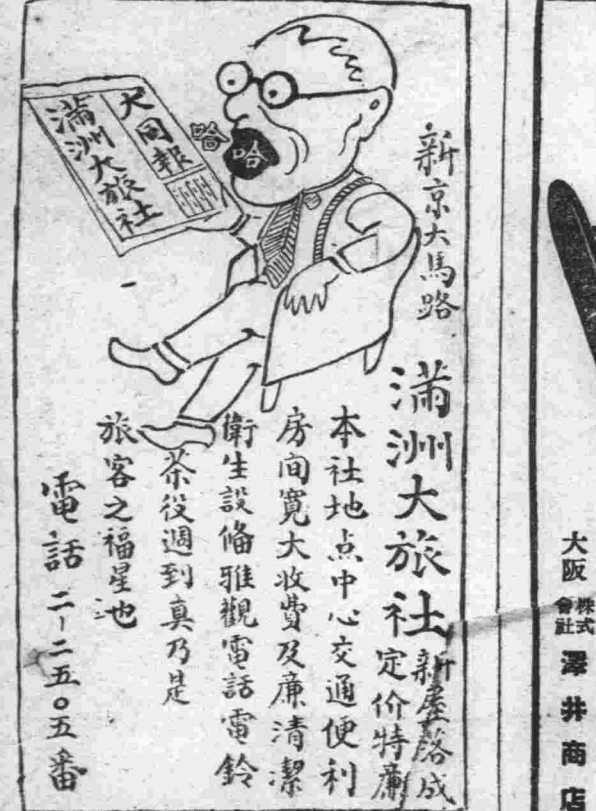 大同報
滿洲大旅社
哈
哈
新京大馬路
滿洲大旅社
新屋落成
定价特廉
本社地点中心交通便利
房间寬大收費及廉清潔
衛生設俻雅觀電話電鈴
茶役週到真乃是
旅客之福星也
電話 二-二五〇五番
大阪
株式
會社
澤井商店